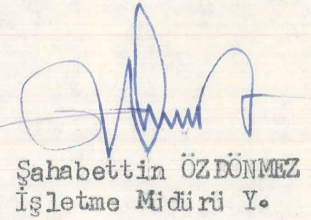 Şahabettin ÖZDÖNMEZ
İşletme Müdürü Y.